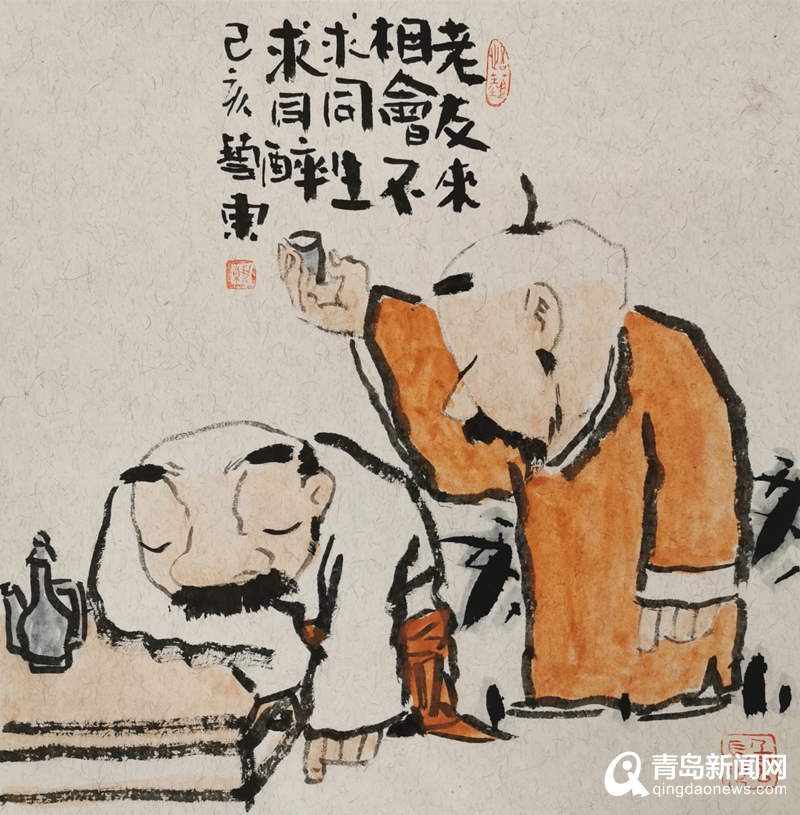 老友來
相會不
求同生
求同醉
己亥藝東
青岛新闻网
qingdaonews.com